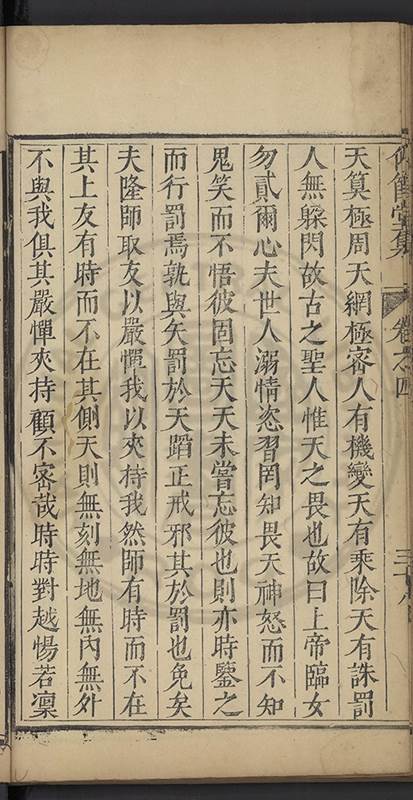 仰節堂集
卷之四
三十八
天算極周天網極密人有機變天有乘除天有誅罰
人無躱閃故古之聖人惟天之畏也故曰上帝臨女
勿貳爾心夫世人溺情恣習罔知畏天神怒而不知
鬼笑而不悟彼固忘天天未嘗忘彼也則亦時鑒之
而行罰焉孰與矢罰於天蹈正戒邪其於罰也免矣
夫隆師取友以嚴憚我以夾持我然師有時而不在
其上友有時而不在其側天則無刻無地無內無外
不與我俱其嚴憚夾持顧不密哉時時對越惕若凜